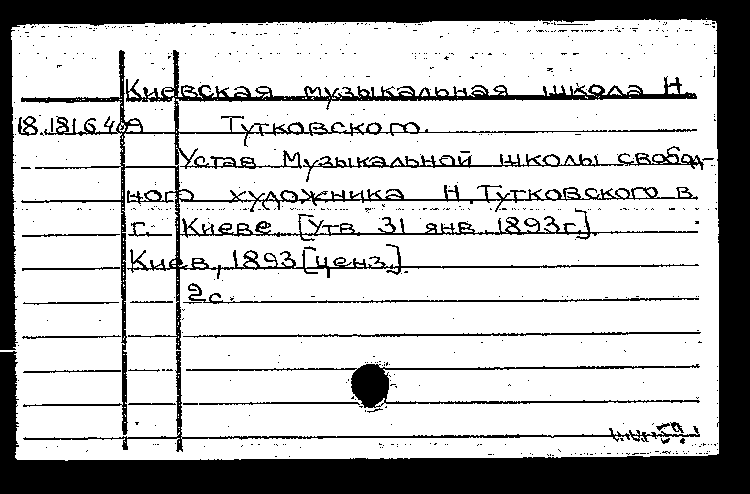 Киевская музыкальная школа Н.
18.181.6.409 Тутковского.
Устав Музыкальной школы свобод-
ного художника Н. Тутковского в
г. Киеве. [Утв. 31 янв. 1893 г.].
Киев, 1893 [ценз.].
2 с.